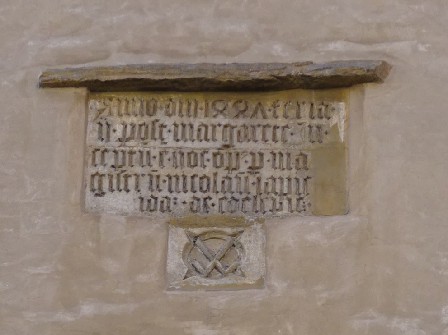 Anno · dm · 1887 · feria
ij · post · margarete · in
ceptu · e · hoc · op · p · ma
gistru · nicolau · lapic
ida · de · edelentz